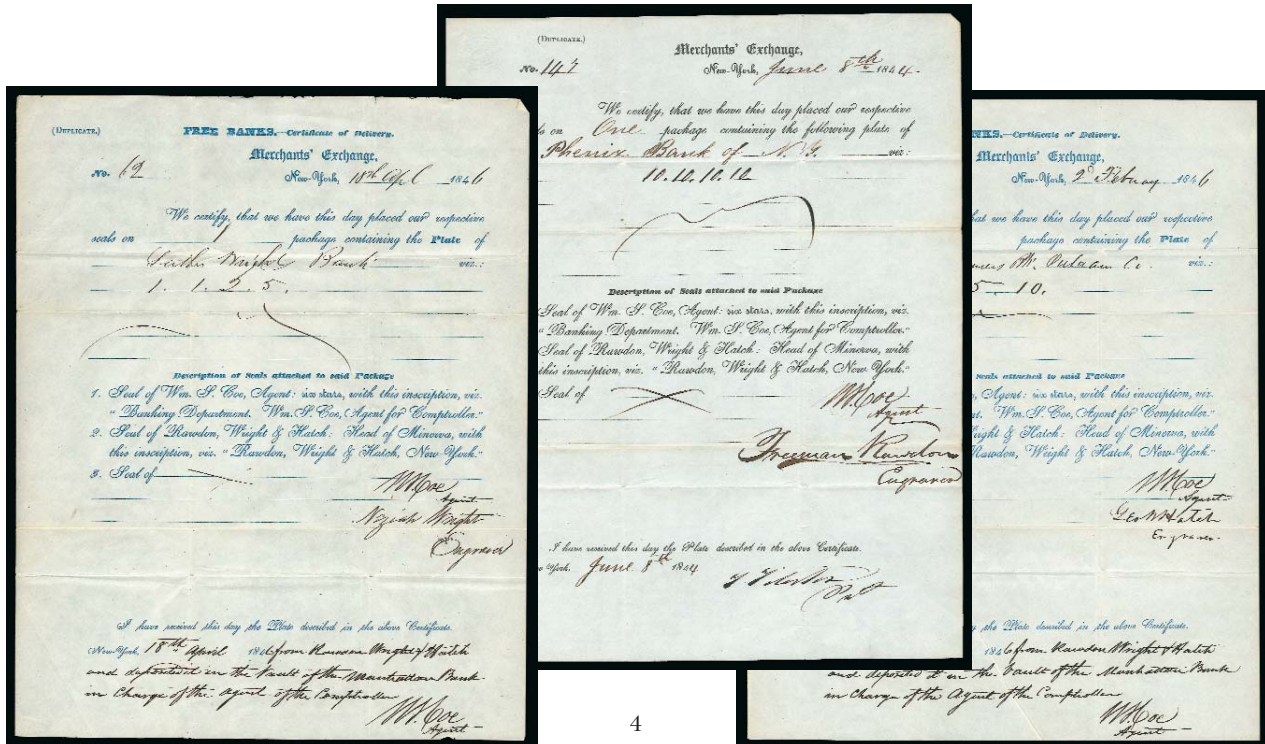 (DUPLICATE.)
FREE BANKS.—Certificate of Delivery.
Merchants' Exchange,
No. 62
New-York, 18th Apl 1846
We certify, that we have this day placed our respective
seals on 1 package containing the Plate of
Luther Wright Bank viz.:
1. 1. 2. 5.
Description of Seals attached to said Package
1. Seal of Wm. S. Coe, Agent: six stars, with this inscription, viz.
"Banking Department. Wm. S. Coe, Agent for Comptroller."
2. Seal of Rawdon, Wright & Hatch: Head of Minerva, with
this inscription, viz. "Rawdon, Wright & Hatch, New York."
3. Seal of
Wm S Coe
Agent
Neziah Wright
Engraver
I have received this day the Plate described in the above Certificate.
New-York, 18th April 1846 from Rawdon Wright & Hatch
and deposited in the Vault of the Manhattan Bank
in Charge of the Agent of the Comptroller
Wm S Coe
Agent
(DUPLICATE.)
Merchants' Exchange,
No. 147
New-York, June 8th 1844.
We certify, that we have this day placed our respective
ls on One package containing the following plate of
Phenix Bank of N. Y. viz:
10.10.10.10
Description of Seals attached to said Package
Seal of Wm. S. Coe, Agent: six stars, with this inscription, viz.
"Banking Department. Wm. S. Coe, Agent for Comptroller."
Seal of Rawdon, Wright & Hatch: Head of Minerva, with
this inscription, viz. "Rawdon, Wright & Hatch, New York."
Seal of
Wm S Coe
Agent
Freeman Rawdon
Engraver
I have received this day the Plate described in the above Certificate.
York, June 8th 1844
NKS.—Certificate of Delivery.
Merchants' Exchange,
New-York, 2d Febuary 1846
hat we have this day placed our respective
package containing the Plate of
Putnam Co. viz.:
5. 10.
Seals attached to said Package
, Agent: six stars, with this inscription, viz.
nt. Wm. S. Coe, Agent for Comptroller."
right & Hatch: Head of Minerva, with
Rawdon, Wright & Hatch, New-York."
Wm S Coe
Agent
Geo W Hatch
Engraver
the Plate described in the above Certificate.
1846 from Rawdon Wright & Hatch
and deposited it in the Vault of the Manhattan Bank
in Charge of the Agent of the Comptroller
Wm S Coe
Agent
4